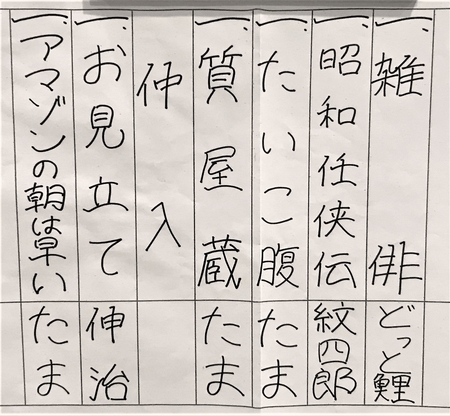 一、雑俳 どっと鯉
一、昭和任侠伝 紋四郎
一、たいこ腹 たま
一、質屋蔵 たま
仲入
一、お見立て 伸治
一、アマゾンの朝は早い たま